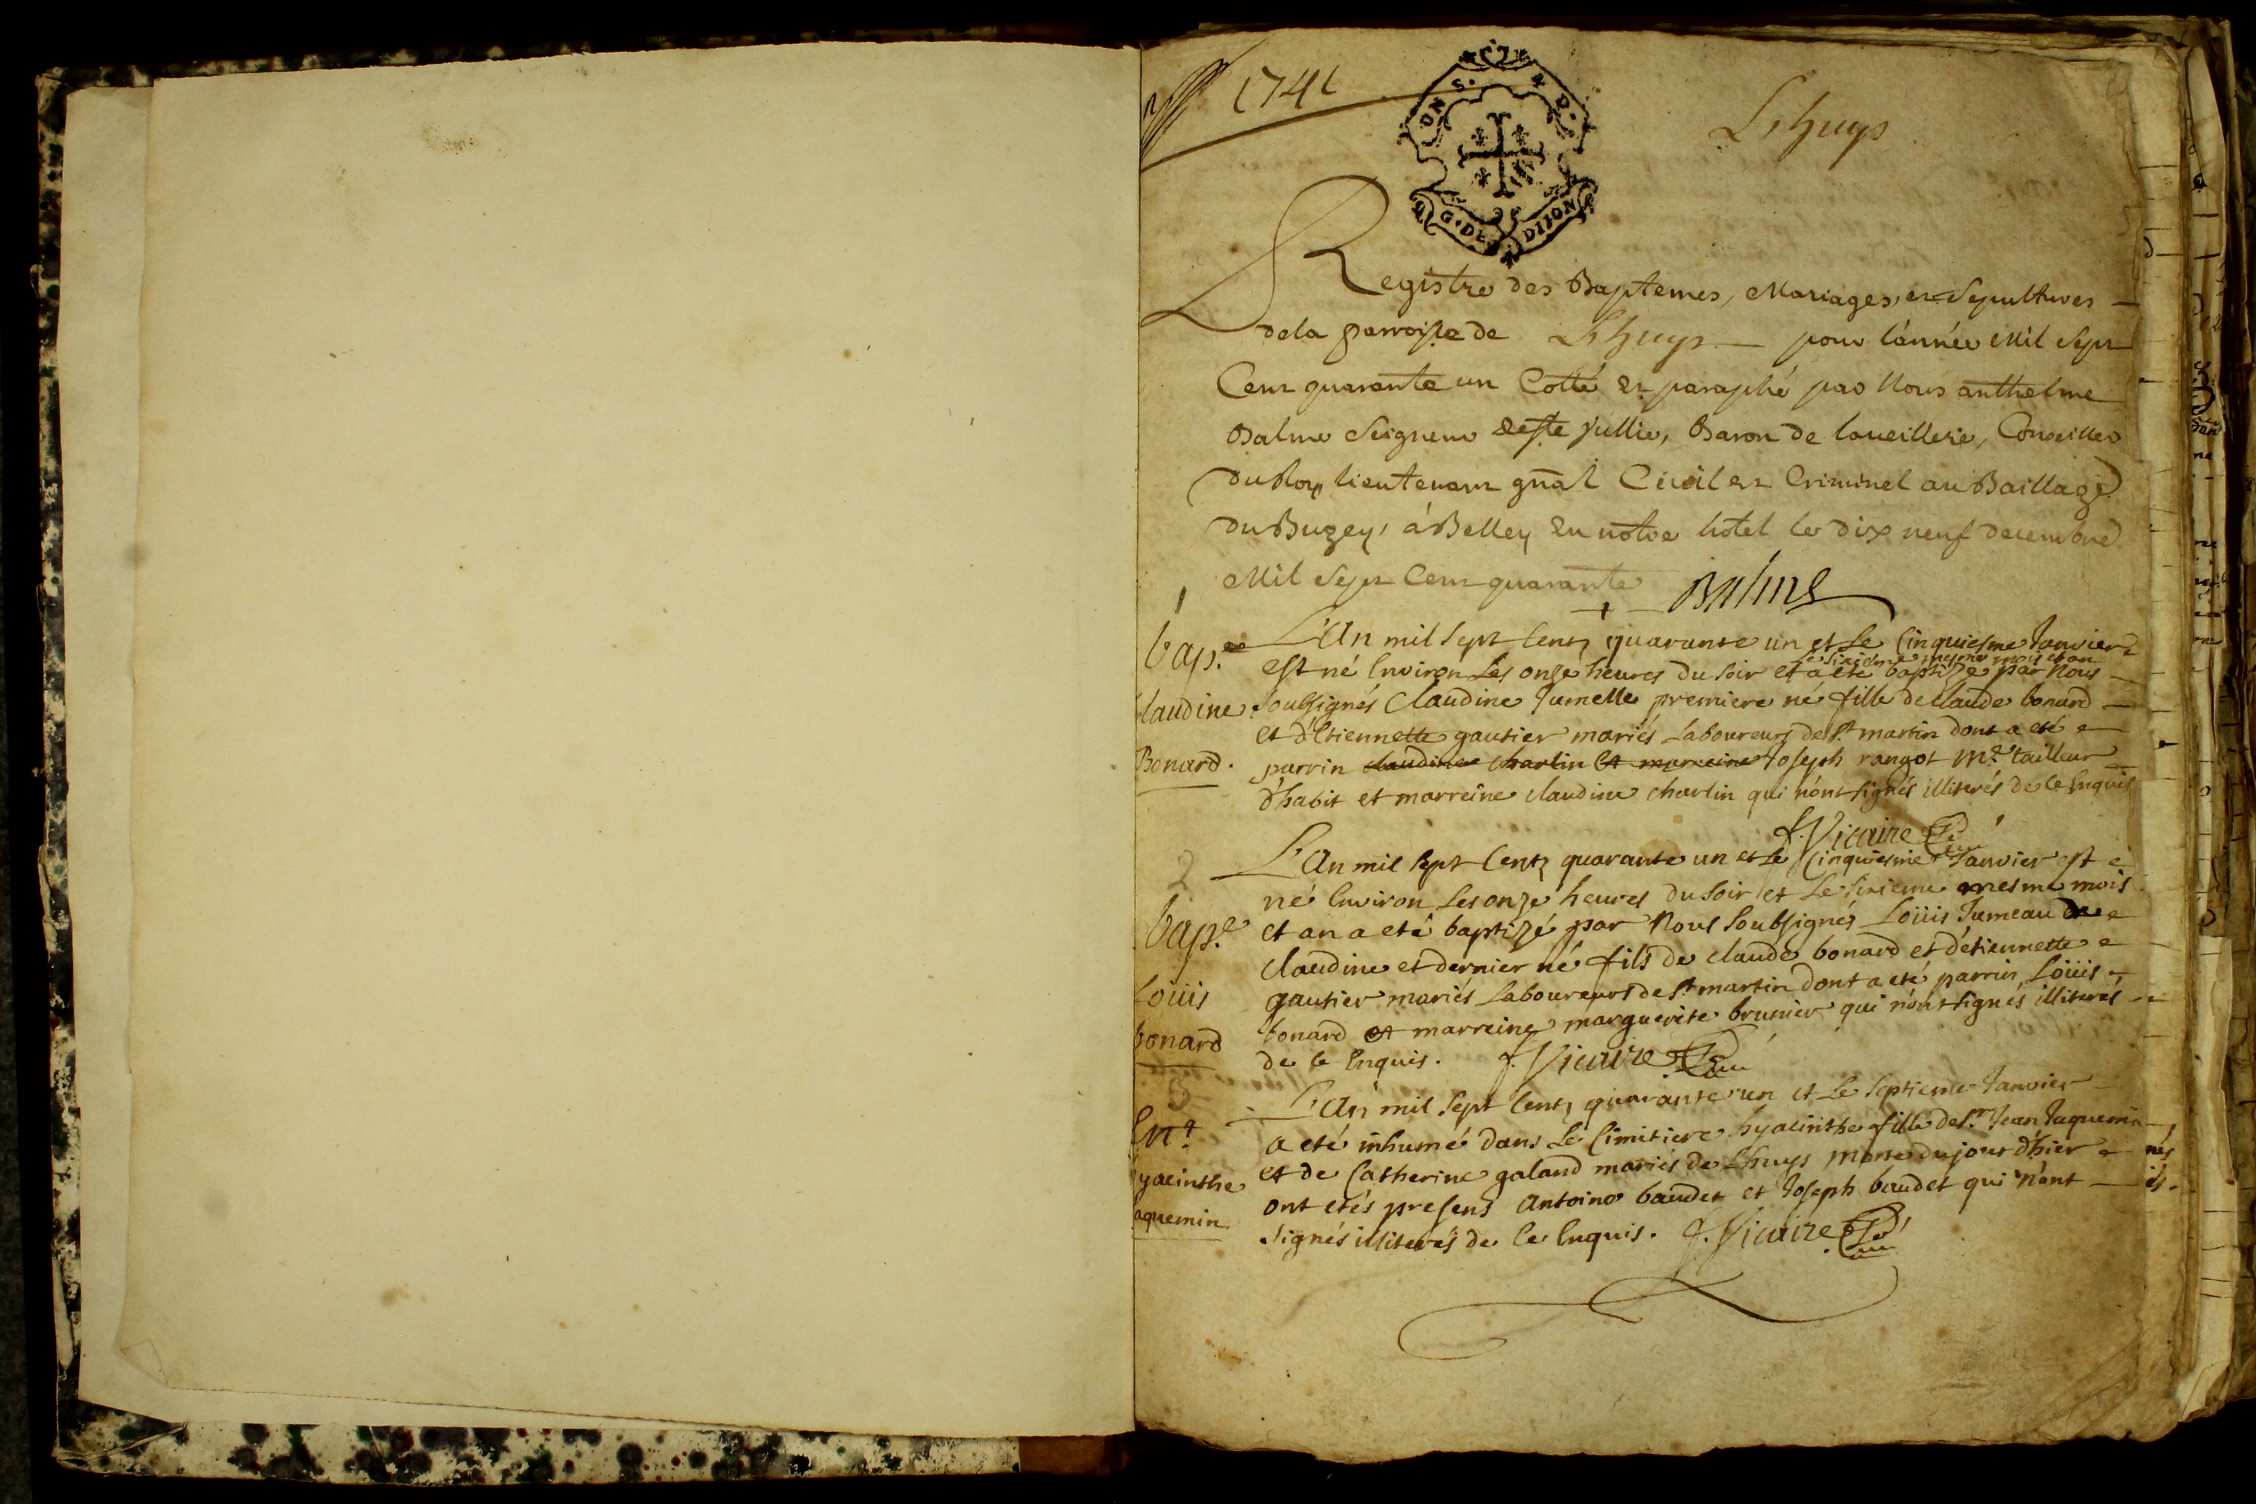 1741
Lhuys
ONS. D.
G. DE DIJON
Registre des Baptemes, Mariages, et Sepultures
de la parroisse de Lhuys pour l'année Mil Sept
Cent quarante un Cotté et paraphé par Nous anthelme
Balme Seigneur de Ste Jullie, Baron de Conseiller
du Roy lieutenant gñal Civil et Criminel au Baillage
du Bugey, à Belley en notre hotel le dix neuf decembre
Mil Sept Cent quarante Balme
1
bap.e
Claudine
Bonard.
L'An mil sept Cent quarante un et Le Cinquiesme Janvier
Le sixieme mesme mois et an
est né Environ Les onze heures du soir et a eté baptizé par Nous
soubsignés Claudine Jumelle premiere né fille de Claude bonard
et d'Etiennette gautier mariés Laboureurs de St martin dont a eté
parrin claudine charlin et marreine Joseph rangot Me tailleur
d'habit et marreine claudine charlin qui n'ont signés illiterés de ce Enquis
f. Vicaire
2
bap.e
Loüis
bonard
L'An mil sept Cent quarante un et Le Cinquiesme Janvier est
né Environ Les onze heures du soir et Le sixieme mesme mois
et an a eté baptizé par Nous soubsignés Loüis Jumeau de
Claudine et dernier né fils de claude bonard et d'etiennette
gautier mariés Laboureurs de St martin dont a eté parrin Loüis
bonard et marreine marguerite brunier qui n'ont signés illiterés
de ce Enquis. f. Vicaire
3
Ent
yacinthe
aquemin
L'An mil sept Cent quarante un et Le septieme Janvier
a eté inhumé dans Le Cimitiere hyacinthe fille de Sr Jean Jaquemin
et de Catherine galand mariés de Lhuys morte du jour d'hier
ont etés presens Antoine baudet et Joseph baudet qui n'ont
signés illiterés de ce Enquis. f. Vicaire